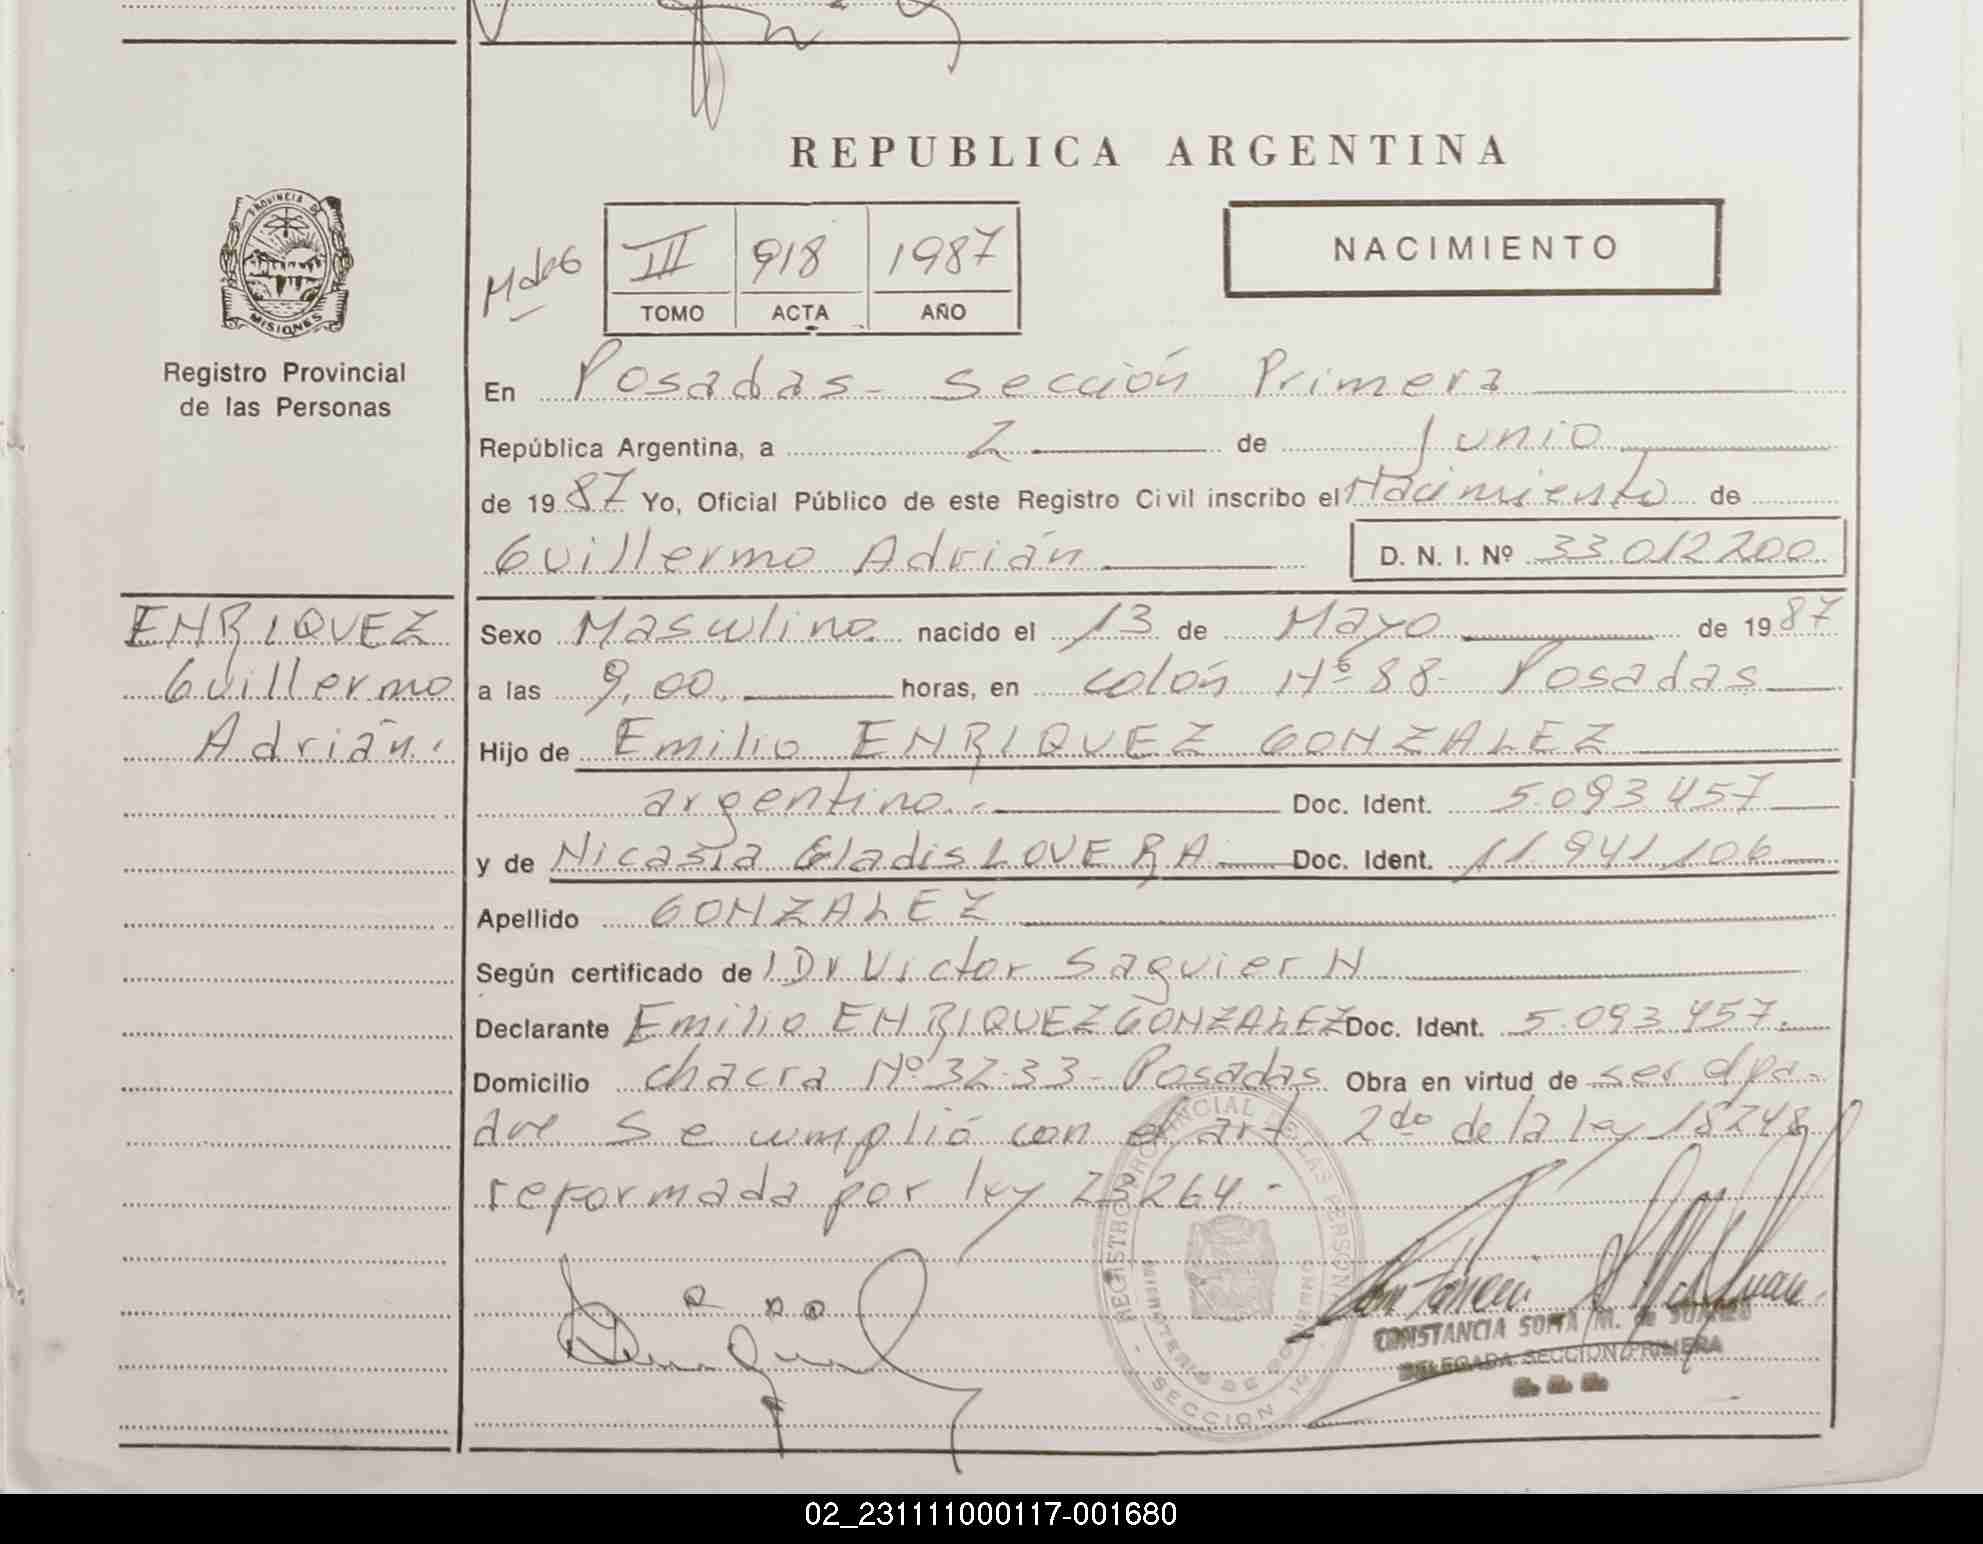 REPUBLICA ARGENTINA
PROVINCIA DE
MISIONES
Registro Provincial
de las Personas
III 918 1987
TOMO ACTA AÑO
NACIMIENTO
En Posadas - Sección Primera
República Argentina, a 2 de Junio
de 1987 Yo, Oficial Público de este Registro Civil inscribo el Nacimiento de
Guillermo Adrián
D. N. I. Nº 33.012.200
ENRIQUEZ
Guillermo
Adrián.
Sexo Masculino nacido el 13 de Mayo de 1987
a las 9,00 horas, en colón Nº 88 - Posadas
Hijo de Emilio ENRIQUEZ GONZALEZ
argentino. Doc. Ident. 5.093.457
y de Nicasia Gladis LOVERA Doc. Ident. 11.941.106
Apellido GONZALEZ
Según certificado de Dr Victor Saguier N
Declarante Emilio ENRIQUEZ GONZALEZ Doc. Ident. 5.093.457.
Domicilio chacra Nº 32-33 - Posadas Obra en virtud de ser el pa-
dre se cumplió con el art 2do de la ley 18248
reformada por ley 23.264 -
REGISTRO PROVINCIAL DE LAS PERSONAS
MINISTERIO DE GOBIERNO
SECCION 1ª
CONSTANCIA SOFIA M. de SUAREZ
DELEGADA SECCION PRIMERA
02_231111000117-001680